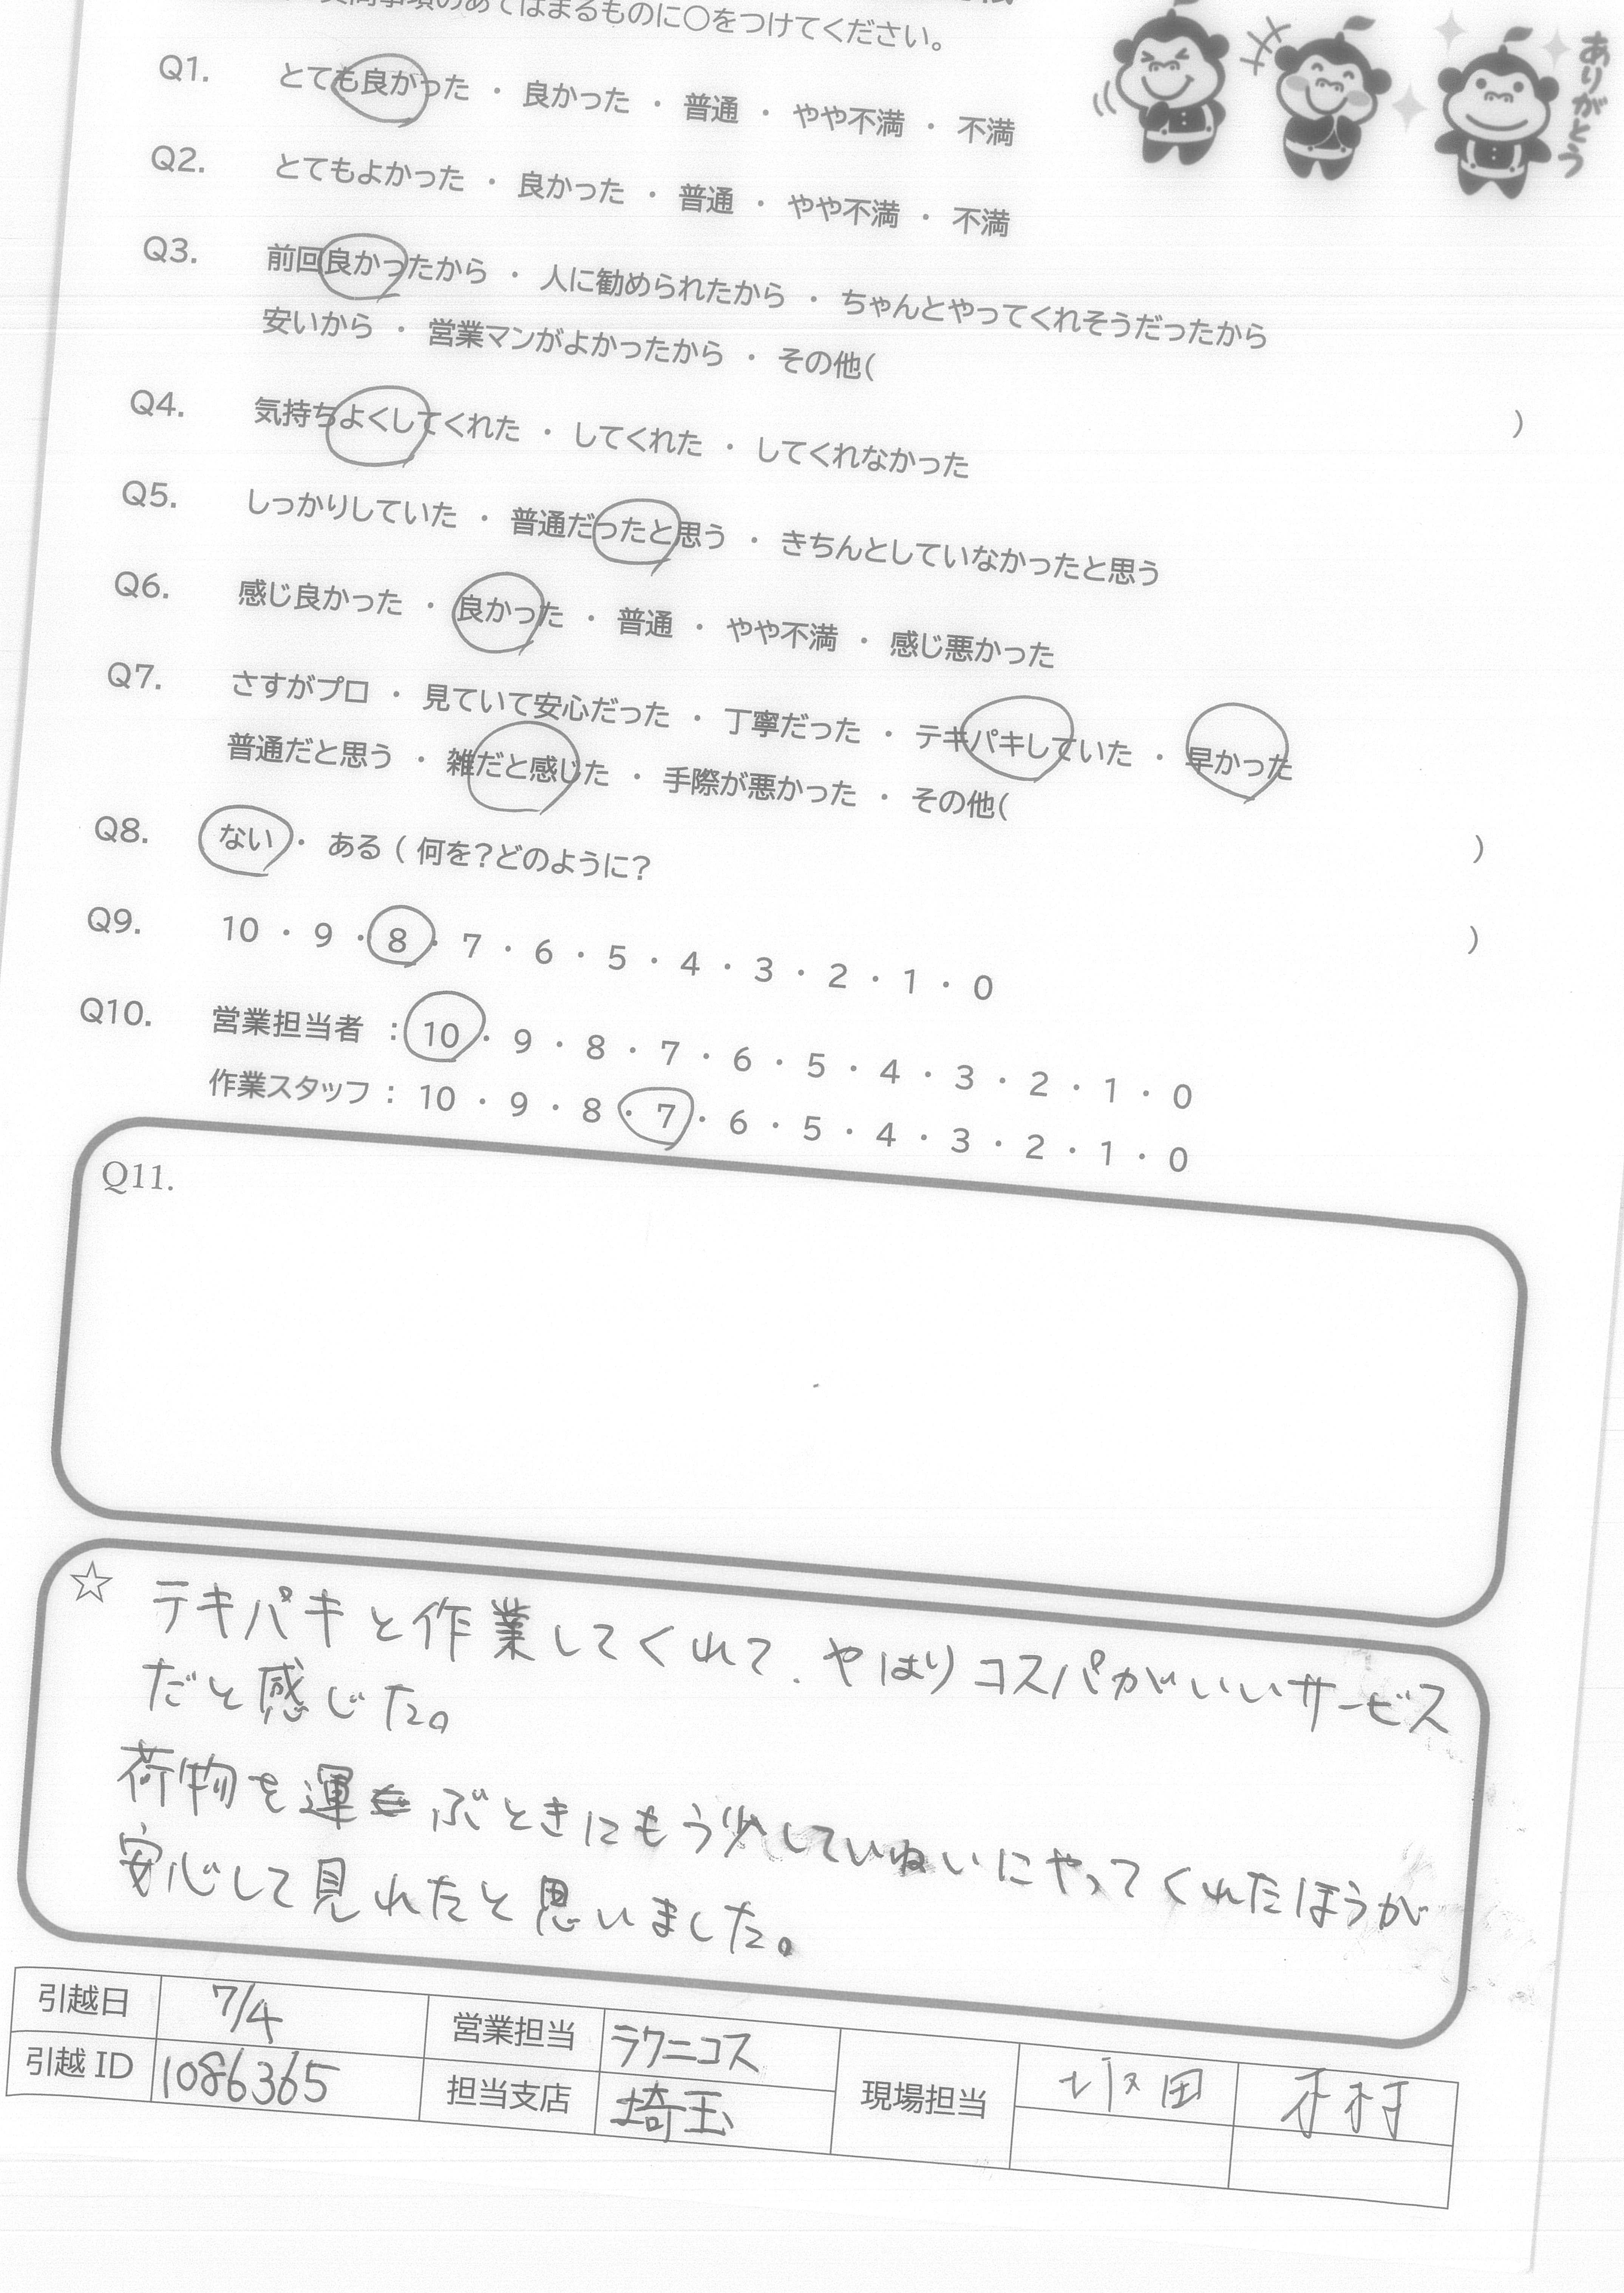 質問事項のあてはまるものに○をつけてください。
ありがとう
Q1. とても良かった ・ 良かった ・ 普通 ・ やや不満 ・ 不満
Q2. とてもよかった ・ 良かった ・ 普通 ・ やや不満 ・ 不満
Q3. 前回良かったから ・ 人に勧められたから ・ ちゃんとやってくれそうだったから
安いから ・ 営業マンがよかったから ・ その他( )
Q4. 気持ちよくしてくれた ・ してくれた ・ してくれなかった
Q5. しっかりしていた ・ 普通だったと思う ・ きちんとしていなかったと思う
Q6. 感じ良かった ・ 良かった ・ 普通 ・ やや不満 ・ 感じ悪かった
Q7. さすがプロ ・ 見ていて安心だった ・ 丁寧だった ・ テキパキしていた ・ 早かった
普通だと思う ・ 雑だと感じた ・ 手際が悪かった ・ その他( )
Q8. ない ・ ある ( 何を?どのように? )
Q9. 10 ・ 9 ・ 8 ・ 7 ・ 6 ・ 5 ・ 4 ・ 3 ・ 2 ・ 1 ・ 0
Q10. 営業担当者 : 10 ・ 9 ・ 8 ・ 7 ・ 6 ・ 5 ・ 4 ・ 3 ・ 2 ・ 1 ・ 0
作業スタッフ : 10 ・ 9 ・ 8 ・ 7 ・ 6 ・ 5 ・ 4 ・ 3 ・ 2 ・ 1 ・ 0
Q11.
☆ テキパキと作業してくれて、やはりコスパがいいサービス
だと感じた。
荷物を運ぶときにもう少していねいにやってくれたほうが
安心して見れたと思いました。
引越日 7/4 営業担当 ラクニコス 現場担当 坂田 木村
引越 ID 1086365 担当支店 埼玉